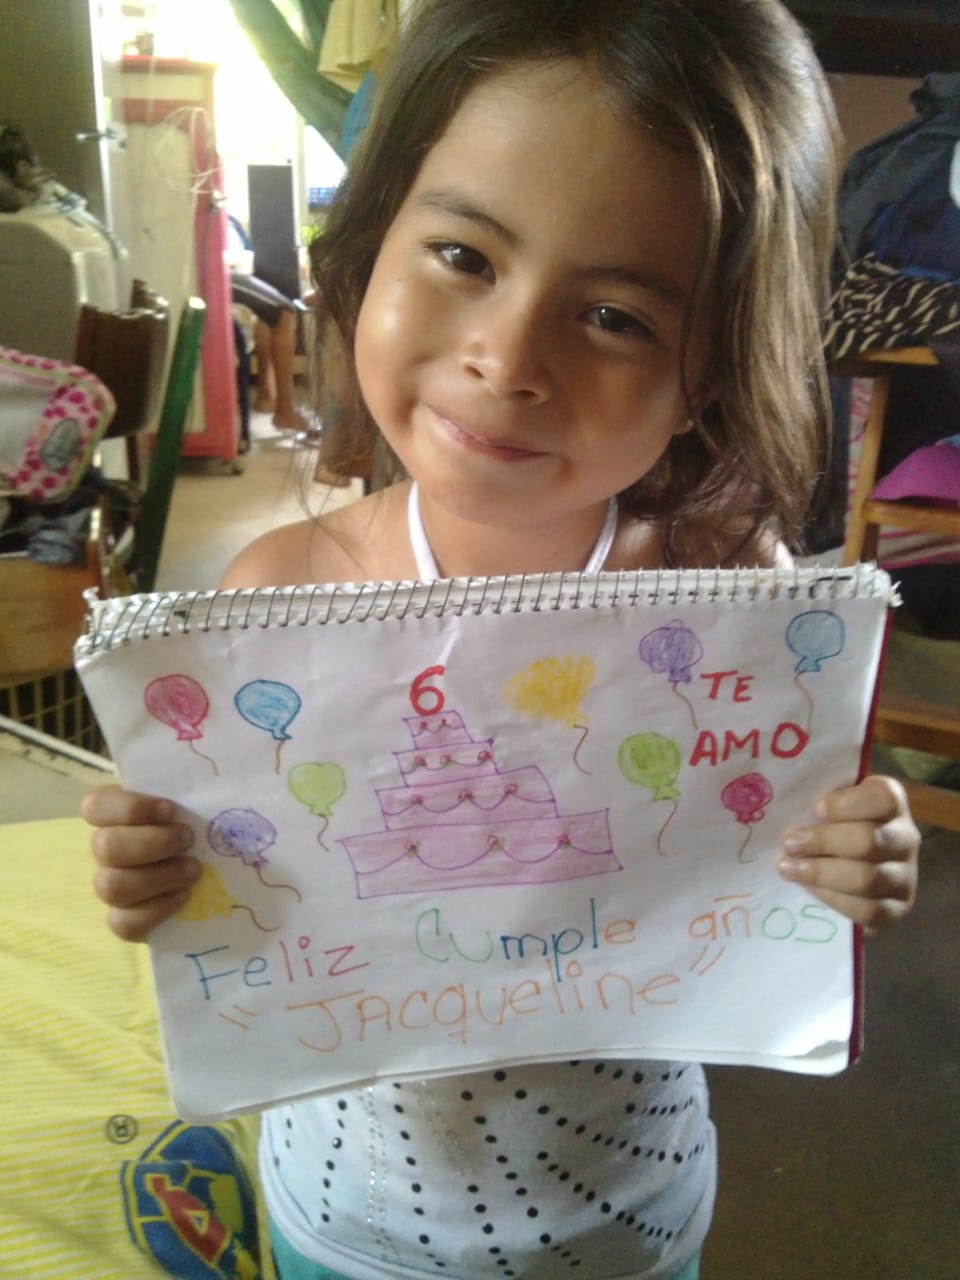 6
TE
AMO
Feliz Cumple años
"Jacqueline"
®